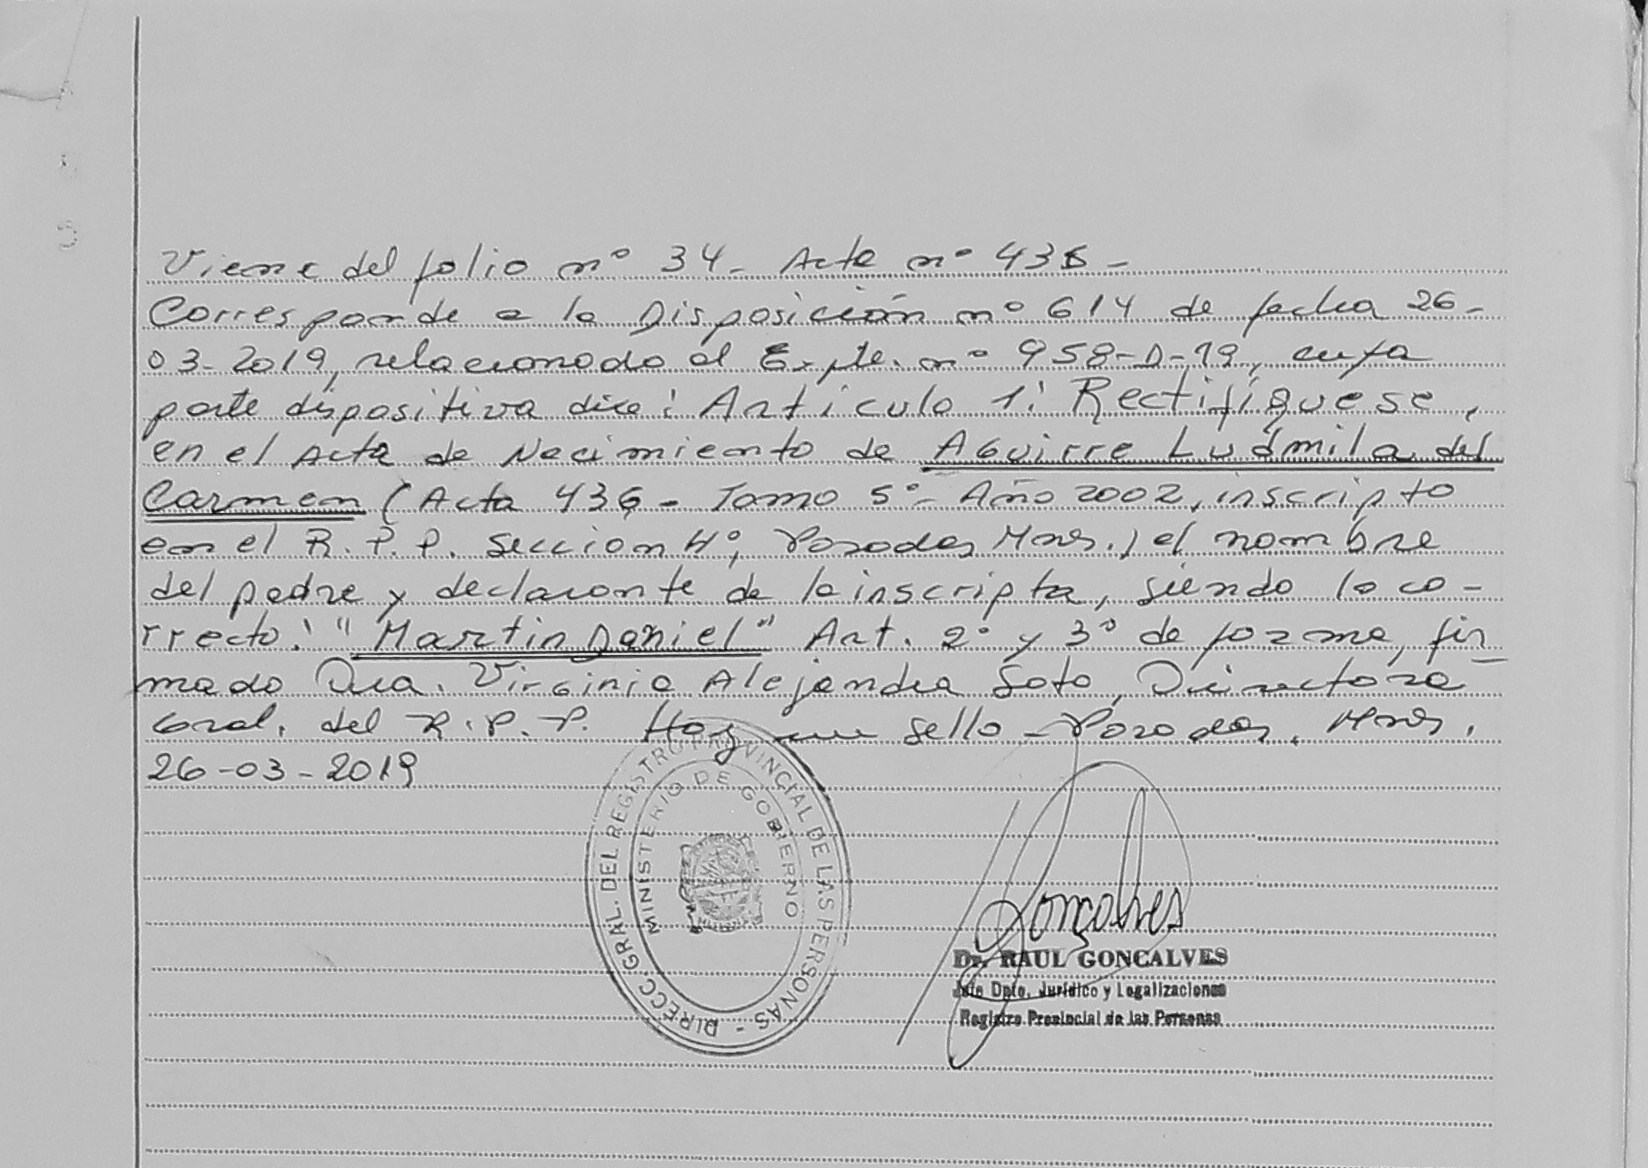 Viene del folio nº 34 - Acta nº 436 -
Corresponde a la Disposición nº 614 de fecha 26-
03-2019, relacionado al Expte. nº 958-D-19, cuya
parte dispositiva dice: Artículo 1: Rectifíquese,
en el Acta de Nacimiento de Aguirre Ludmila del
Carmen (Acta 436 - Tomo 5º - Año 2002, inscripto
en el R.P.P. Seccion 4º, Posadas Mnes.) el nombre
del padre y declarante de la inscripta, siendo lo co-
rrecto: "Martin Daniel" Art. 2º y 3º de forma, fir
mado Dra. Virginia Alejandra Soto, Directora
Gral. del R.P.P. Hay un sello - Posadas, Mnes,
26-03-2019
DIRECC. GRAL. DEL REGISTRO PROVINCIAL DE LAS PERSONAS -
MINISTERIO DE GOBIERNO
Gonçalves
Dr. RAUL GONCALVES
Jefe Dpto. Jurídico y Legalizaciones
Registro Provincial de las Personas